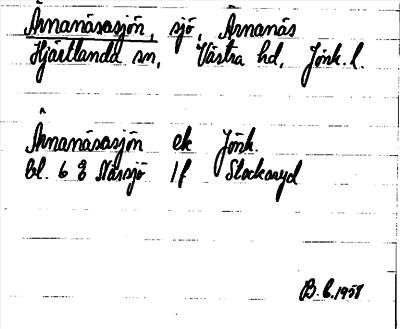 Årnanäsasjön, sjö, Arnanäs
Hjärtlanda sn, Västra hd, Jönk. l.
Årnanäsasjön ek Jönk.
bl. 6 Nässjö lf Stockaryd
B. C. 1958